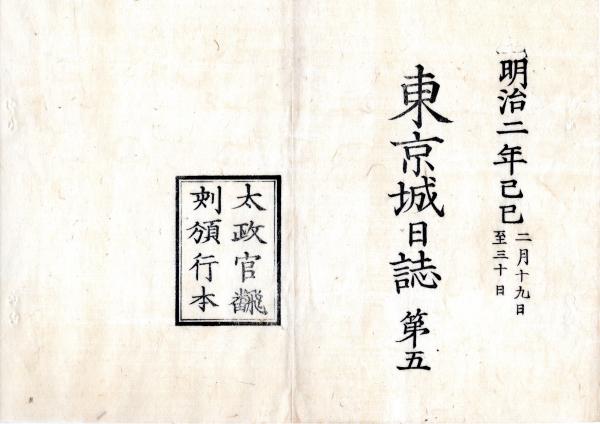 明治二年己巳
二月十九日
至三十日
東京城日誌 第五
太政官飜
刻頒行本